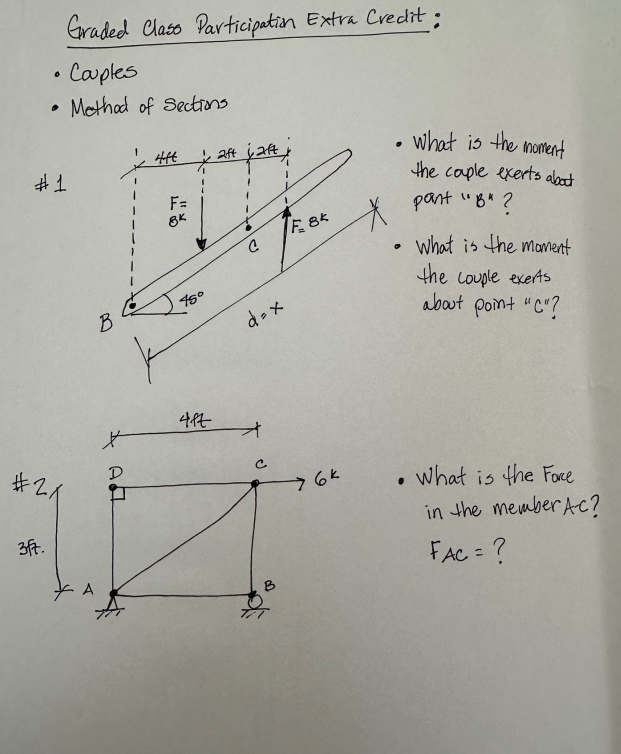 Graded Class Participation Extra Credit:
• Couples
• Method of Sections
#1
4ft 2ft 2ft
F=
8k
F=8k
C
B
45°
d=+
• What is the moment
the couple exerts about
point "B"?
• What is the moment
the couple exerts
about point "C"?
#2
4ft
3ft.
D
C
6k
A
B
• What is the Force
in the member AC?
FAC = ?